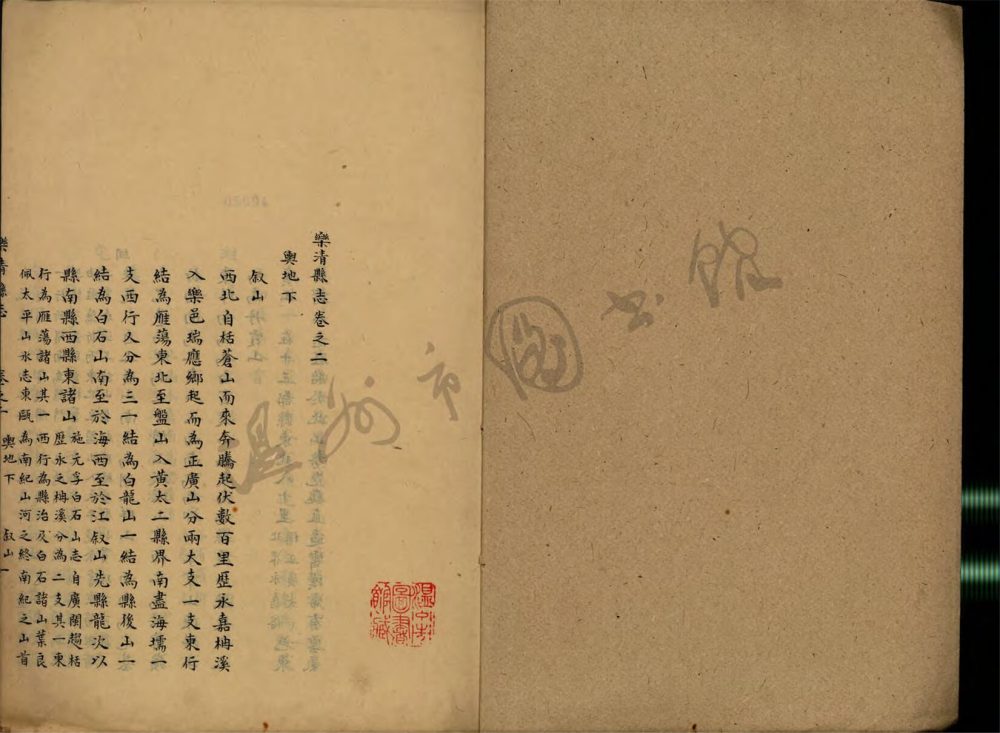 樂清縣志卷之二
輿地下
叙山
西北自括蒼山而來奔騰起伏數百里歷永嘉柟溪
入樂邑瑞應鄉起而為正廣山分兩大支一支東行
結為雁蕩東北至盤山入黃太二縣界南盡海壖一
支西行又分為三一結為白龍山一結為縣後山一
結為白石山南至於海西至於江叙山先縣龍次以
縣南縣西縣東諸山施元孚白石山志自廣閣趨括
歷永之柟溪分為二支其一東
行為雁蕩諸山其一西行為縣治及白石諸山葉良
佩太平山水志東甌為南紀山河之終南紀之山首
樂清縣志
輿地下
叙山一
溫州市圖書館
溫州市圖書館藏